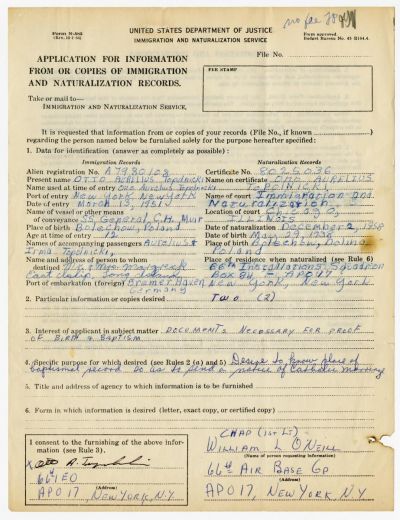 Form N-585
UNITED STATES DEPARTMENT OF JUSTICE
IMMIGRATION AND NATURALIZATION SERVICE
Form approved.
File No.
APPLICATION FOR INFORMATION
FROM OR COPIES OF IMMIGRATION
AND NATURALIZATION RECORDS.
FEE STAMP
Take or mail to—
IMMIGRATION AND NATURALIZATION SERVICE,
It is requested that information from or copies of your records (File No., if known )
regarding the person named below be furnished solely for the purpose hereafter specified:
1. Data for identification (answer as completely as possible):
Immigration Records
Alien registration No. A7980103
Present name OTTO AURELIUS Topolnicki
Name used at time of entry Aurelius Topolnicki
Port of entry New York, New York
Date of entry March 13, 1951
Name of vessel or other means
of conveyance SS General, C.H. Muir
Place of birth Bolechow, Poland
Age at time of entry 12
Names of accompanying passengers Aurelius &
Irma Topolnicki,
Name and address of person to whom
destined Mr. & Mrs.
East Islip, Long Island
Port of embarkation (foreign) Bremer Haven
Germany
Naturalization Records
Certificate No. 8025036
Name on certificate AURELIUS
TOPOLNICKI
Name of court Immigration and
Naturalization,
Location of court Chicago,
ILLINOIS
Date of naturalization December 2, 1958
Date of birth May 29, 1938
Place of birth Bolechow, Dolina
Poland
Place of residence when naturalized (see Rule 6)
66th Installations Squadron
Box 84 - APO 17
New York, New York
2. Particular information or copies desired Two (2)
3. Interest of applicant in subject matter DOCUMENTS NECESSARY FOR PROOF
OF BIRTH & BAPTISM
4. Specific purpose for which desired (see Rules 2 (a) and 5) Desire to know place of
baptismal record so as to send a notice of Catholic marriage
5. Title and address of agency to which information is to be furnished
6. Form in which information is desired (letter, exact copy, or certified copy)
I consent to the furnishing of the above information
(see Rule 3).
66th EO
(Address)
APO 17, NEW YORK, N.Y.
CHAP (1st Lt)
WILLIAM L O'NEILL
(Name of person requesting information)
66th AIR BASE GP
(Address)
APO 17, NEW YORK, N.Y.